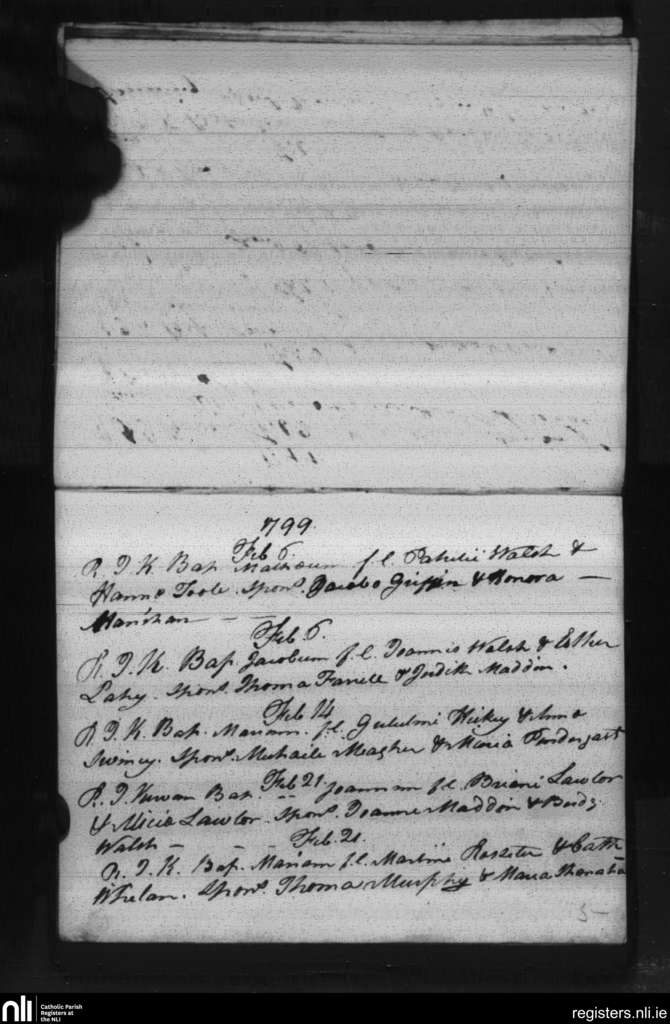 1799.
Feb 6.
R. D. K. Bap. Matheum f. l. Patricii Walsh &
Hannæ Toole. Spons. Jacobo Griffin & Honora —
Manihan — —
Feb. 6.
R. D. K. Bap. Jacobum f. l. Joannis Walsh & Esther
Lahy. Spons. Thoma Farrell & Judith Maddin.
Feb 14
R. D. K. Bap. Mariam. f. l. Gulielmi Hickey & Anna
Swiney. Spons. Michaile Meagher & Maria Pendergast
Feb 21
R. D. Kirwan Bap. -- Joannem f. l. Briani Lawlor
& Alicia Lawlor. Spons. Joanne Maddin & Bridg.
Walsh — — —
Feb. 21.
R. D. K. Bap. Mariam f. l. Martini Rossiter & Cath
Whelan. Spons. Thoma Murphy & Maria
5-
nli
Catholic Parish
Registers at
the NLI
registers.nli.ie